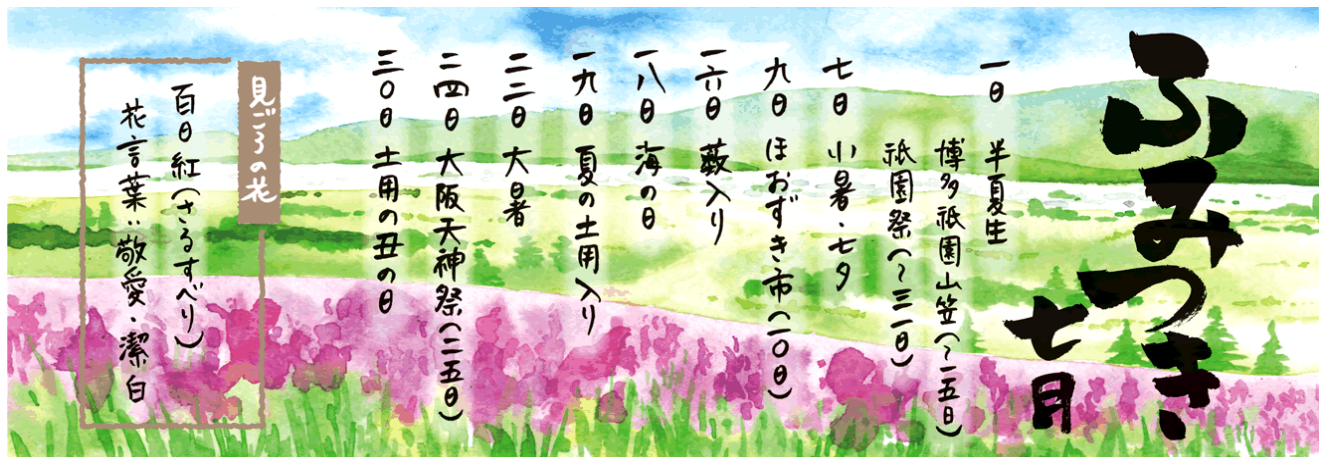 ふみつき
七月
一日 半夏生
博多祇園山笠(～一五日)
祇園祭(～三一日)
七日 小暑・七夕
九日 ほおずき市(一〇日)
一六日 薮入り
一八日 海の日
一九日 夏の土用入り
二三日 大暑
二四日 大阪天神祭(二五日)
三〇日 土用の丑の日
見ごろの花
百日紅(さるすべり)
花言葉：敬愛・潔白